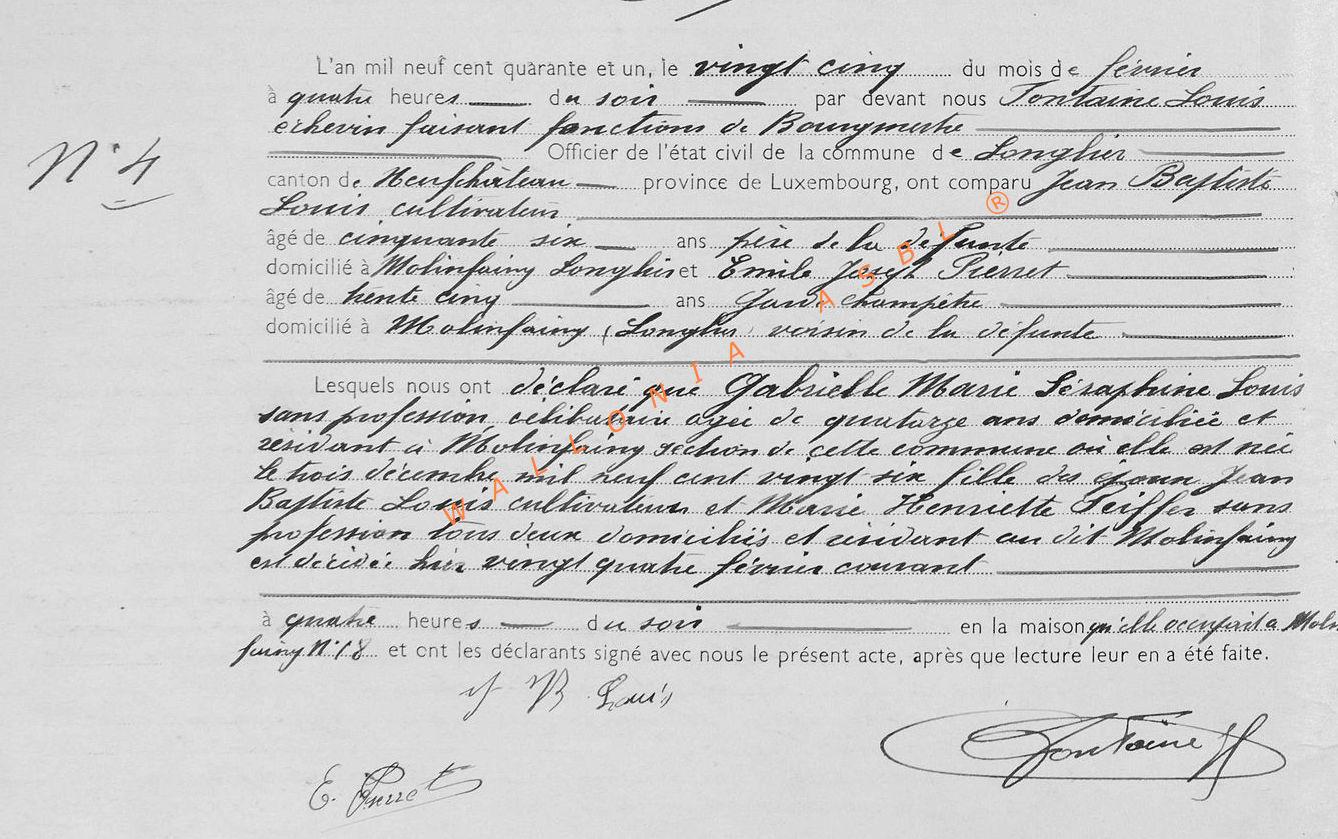 L'an mil neuf cent quarante et un, le vingt cinq du mois de février
à quatre heures du soir par devant nous Fontaine Louis
échevin faisant fonctions de Bourgmestre
N° 4
Officier de l'état civil de la commune de Longlier
canton de Neufchâteau province de Luxembourg, ont comparu Jean Baptiste
Louis cultivateur
âgé de cinquante six ans père de la défunte
domicilié à Molinfaing Longlier et Emile Joseph Pierret
âgé de trente cinq ans Garde Champêtre
domicilié à Molinfaing (Longlier) voisin de la défunte
Lesquels nous ont déclaré que Gabrielle Marie Séraphine Louis
sans profession célibataire agée de quatorze ans domiciliée et
résidant à Molinfaing section de cette commune où elle est née
le trois décembre mil neuf cent vingt six fille des époux Jean
Baptiste Louis cultivateur et Marie Henriette Peiffer sans
profession tous deux domiciliés et résidant au dit Molinfaing
est décédée hier vingt quatre février courant
à quatre heures du soir en la maison qu'elle occupait à Molin
faing N° 18 et ont les déclarants signé avec nous le présent acte, après que lecture leur en a été faite.
J B Louis
Fontaine
E. Pierret
WALLONIA ASBL ®